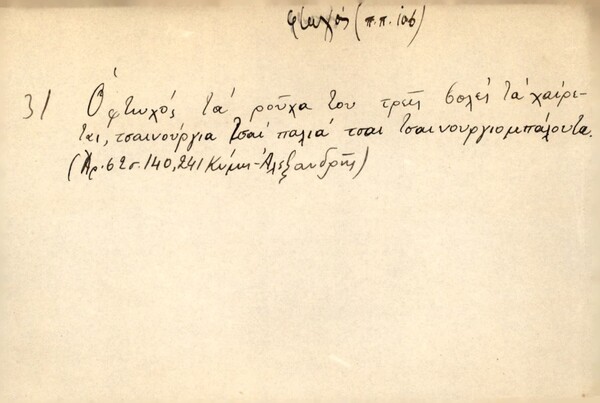 φτωχός (π.π. 106)
31 Ὁ φτωχός τά ροῦχα του τρεῖς βολές τά χαίρε-
ται, τσαινούργια τσαί παλιά τσαι τσαινουργιομπάλουτα.
(Ἀρ. 62 σ. 140, 241 Κύμης - Ἀλεξανδρῆς)